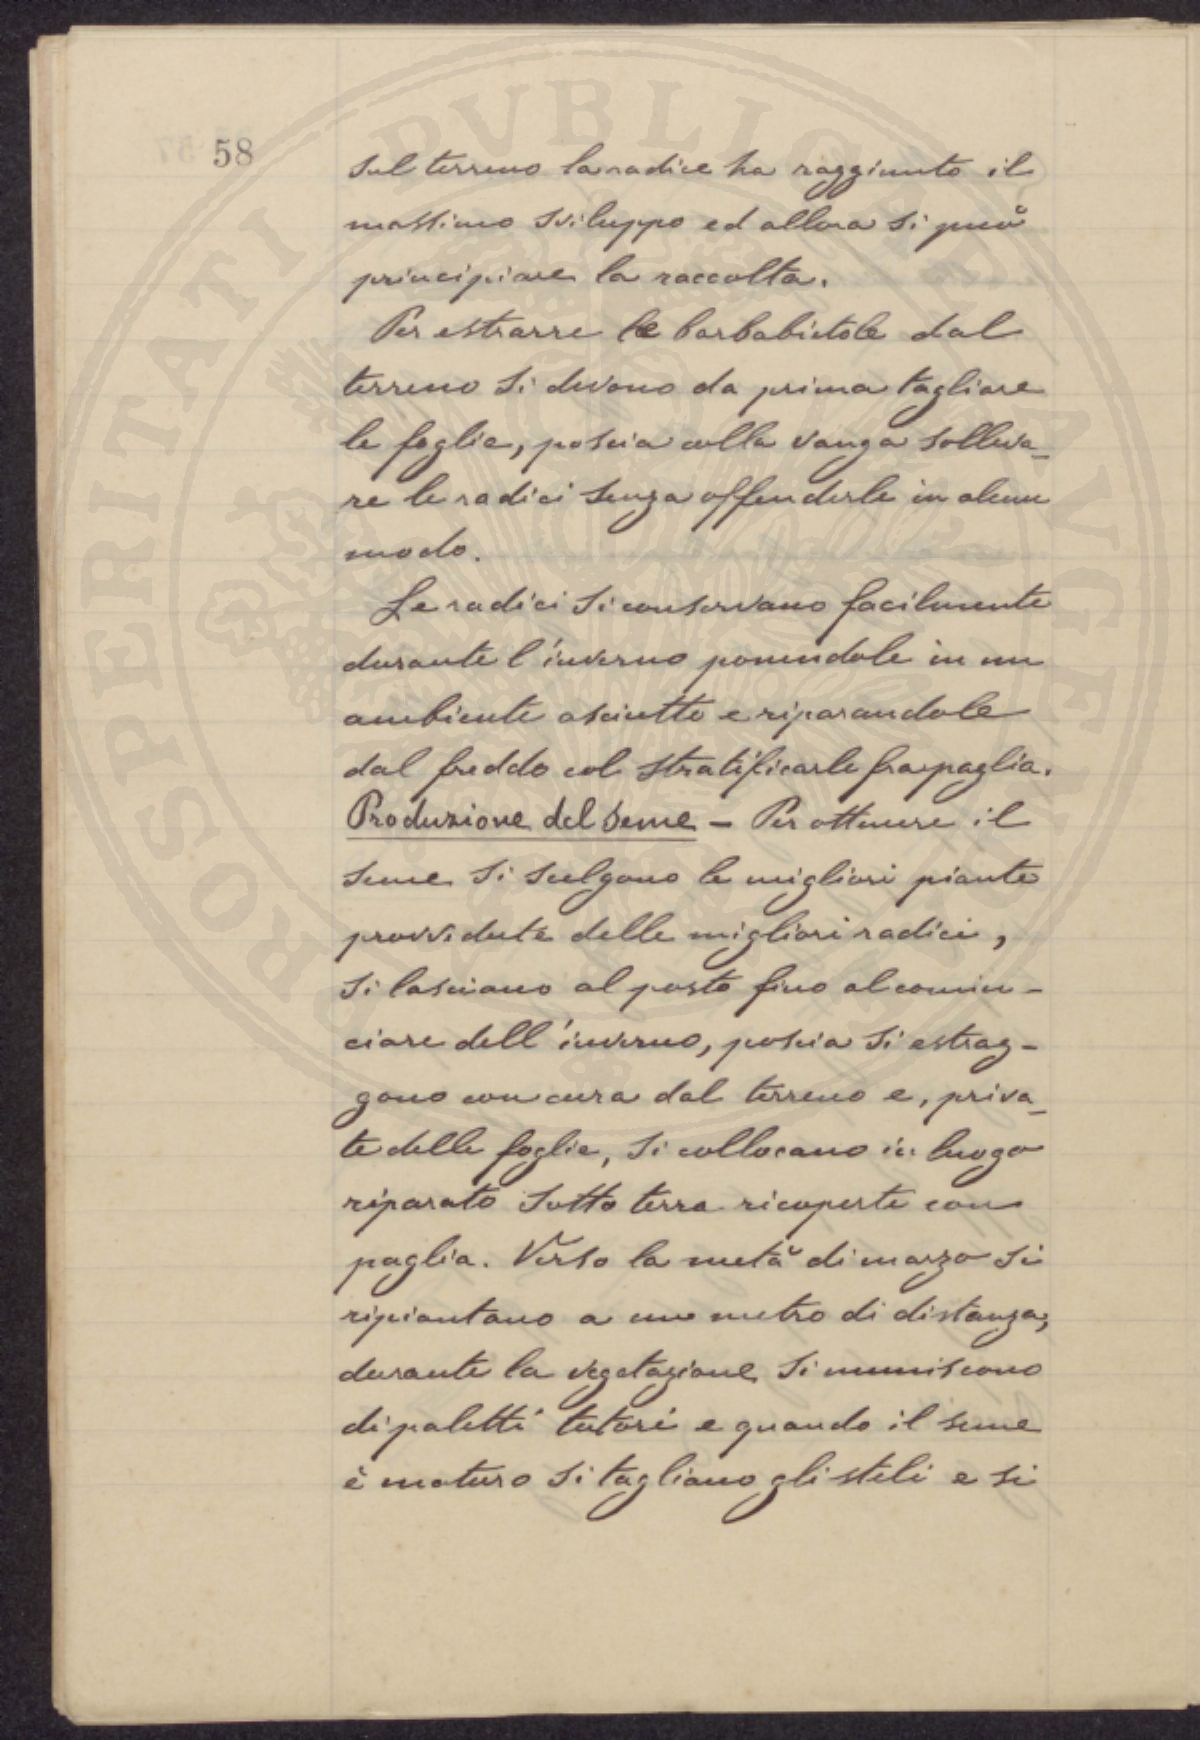 58
sul terreno la radice ha raggiunto il
massimo sviluppo ed allora si può
principiare la raccolta.
Per estrarre le barbabietole dal
terreno si devono da prima tagliare
le foglie, poscia colla vanga solleva-
re le radici senza offenderle in alcun
modo.
Le radici si conservano facilmente
durante l'inverno ponendole in un
ambiente asciutto e riparandole
dal freddo col stratificarle fra paglia.
Produzione del Seme - Per ottenere il
seme si scelgono le migliori piante
provvedute delle migliori radici,
si lasciano al posto fino al comin-
ciare dell'inverno, poscia si estrag-
gono con cura dal terreno e, priva-
te delle foglie, si collocano in luogo
riparato sotto terra ricoperte con
paglia. Verso la metà di marzo si
ripiantano a un metro di distanza,
durante la vegetazione si muniscono
di paletti tutori e quando il seme
è maturo si tagliano gli steli e si
PROSPERITATI PVBLICAE AVGENDAE